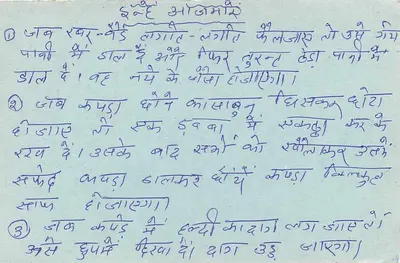 इन्हें आजमाएं
① जब रबर-बैंड लगाते-लगाते फैल जाए तो उसे गर्म
पानी में डाल दें और फिर तुरन्त ठंडा पानी में
डाल दें। वह नये के जैसा हो जाएगा।
② जब कपड़ा धोने का साबुन घिसकर छोटा
हो जाए तो एक डब्बा में इकट्ठा कर के
रख दें। उसके बाद सभी को खौलाकर उसमें
सफेद कपड़ा डालकर धोयें कपड़ा बिल्कुल
साफ हो जाएगा।
③ जब कपड़े में हल्दी का दाग लग जाए तो
उसे धूप में दिखा दें। दाग उड़ जाएगा।